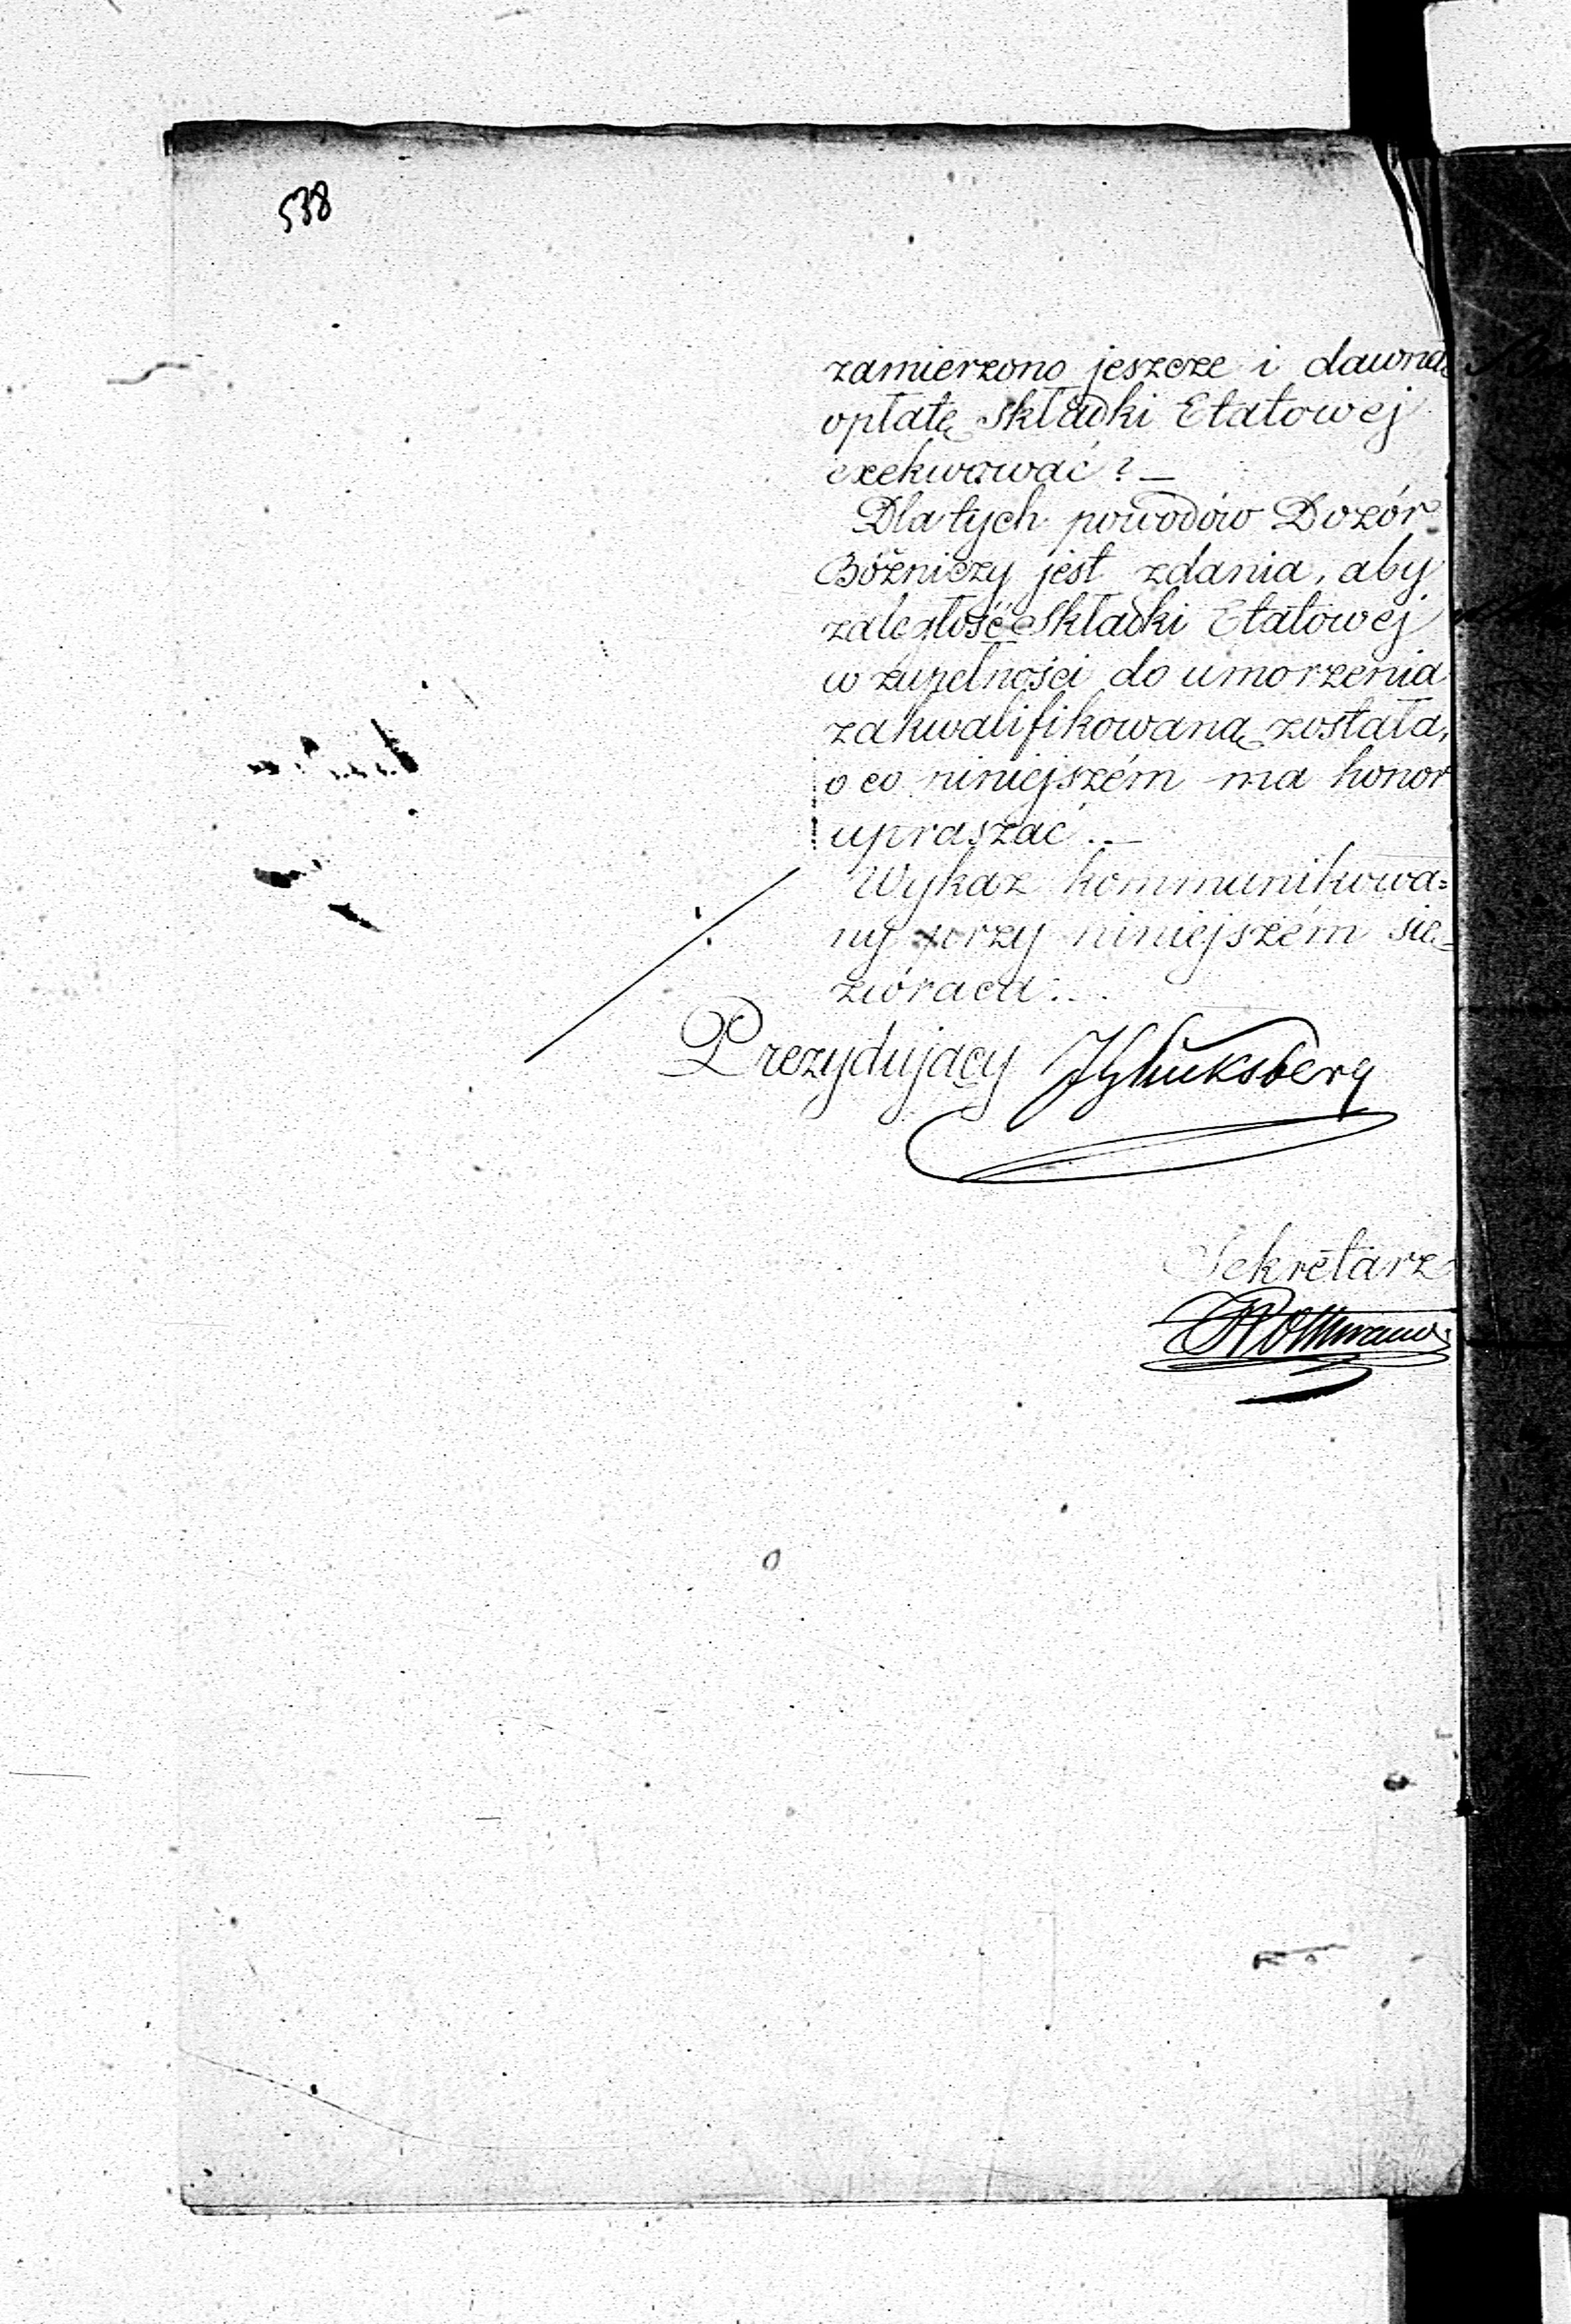 538
zamierzono jeszcze i dawną
opłatę składki Etatowej
exekwować ? —
Dla tych powodów Dozór
Bóżniczy jest zdania, aby
zaległość składki Etatowej
w zupełności do umorzenia
zakwalifikowaną została,
o co niniejszém ma honor
upraszać. —
Wykaz kommunikowa=
ny przy niniejszém się
zwóraca. . .
Prezydujący JGluksberg
Sekretarz